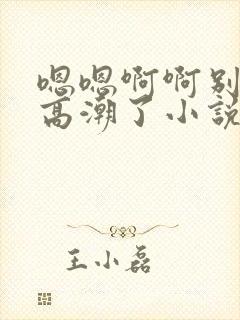 嗯嗯啊啊别
高潮了小说
王小磊